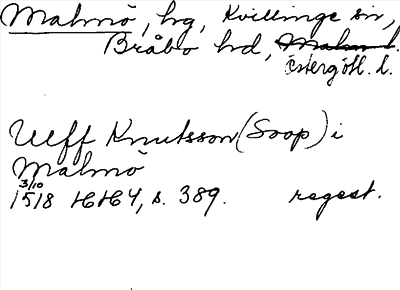 Malmö, hg, Kvillinge sn,
Bråbo hd, Malm l.
Östergötl. l.
Ulff Knutsson (Soop) i
Malmö
3/10
1518 HH 4, s. 389. regest.